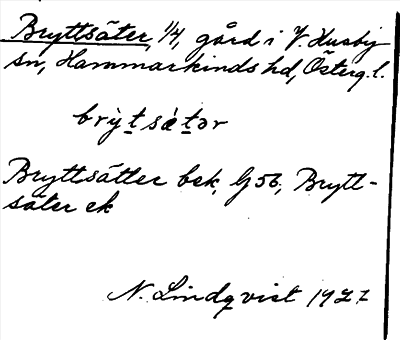 Bryttsäter, 1/4, gård i V. Husby
sn, Hammarkinds hd, Österg. l.
brỳtsǽtər
Bryttsätter bek, G 56, Brytt-
säter ek
N. Lindqvist 1927